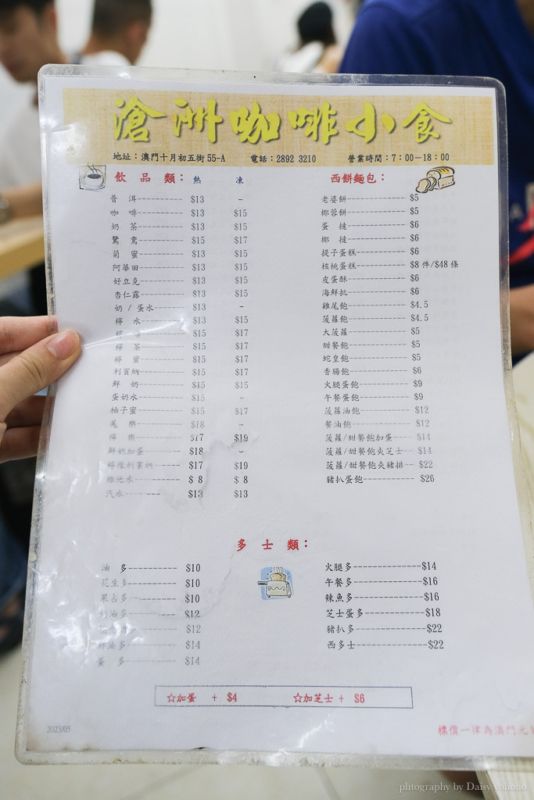 滄洲咖啡小食
地址：澳門十月初五街55-A 電話：2892 3210 營業時間：7：00－18：00
飲 品 類： 熱 凍
普 洱 $13 -
咖 啡 $13 $15
奶 茶 $13 $15
鴛 鴦 $15 $17
菊 蜜 $13 $15
阿華田 $13 $15
好立克 $13 $15
杏仁霜 $13 $15
奶 / 蛋水 $13 -
檸 水 $13 $15
檸 $15 $17
檸 茶 $15 $17
檸 蜜 $15 $17
利賓納 $15 $17
鮮 奶 $15 $15
蛋奶水 $15 -
柚子蜜 $15 $17
$18 -
檸 樂 $17 $19
鮮奶加蛋 $18 -
檸檬利賓納 $17 $19
$ 8 $ 8
汽水 $13 $13
西餅麵包：
老婆餅 $5
椰蓉餅 $5
蛋 撻 $6
椰 撻 $6
提子蛋糕 $6
核桃蛋糕 $8 件/$48 條
皮蛋酥 $6
海鮮扒 $6
雞尾飽 $4.5
菠蘿飽 $4.5
大菠蘿 $5
甜餐飽 $5
蛇皇飽 $5
香腸飽 $6
火腿蛋飽 $9
午餐蛋飽 $9
菠蘿油飽 $12
餐油飽 $12
菠蘿/甜餐飽加蛋 $14
菠蘿/甜餐飽夾芝士 $14
菠蘿/甜餐飽夾豬排 $22
豬扒蛋飽 $26
多 士 類：
油 多 $10
花生多 $10
果占多 $10
$12
$12
$14
蛋 多 $14
火腿多 $14
午餐多 $16
辣魚多 $16
芝士蛋多 $18
豬扒多 $22
西多士 $22
☆加蛋 + $4 ☆加芝士 + $6
2023/05
標價一律為澳門
photography by Daisy yohoho